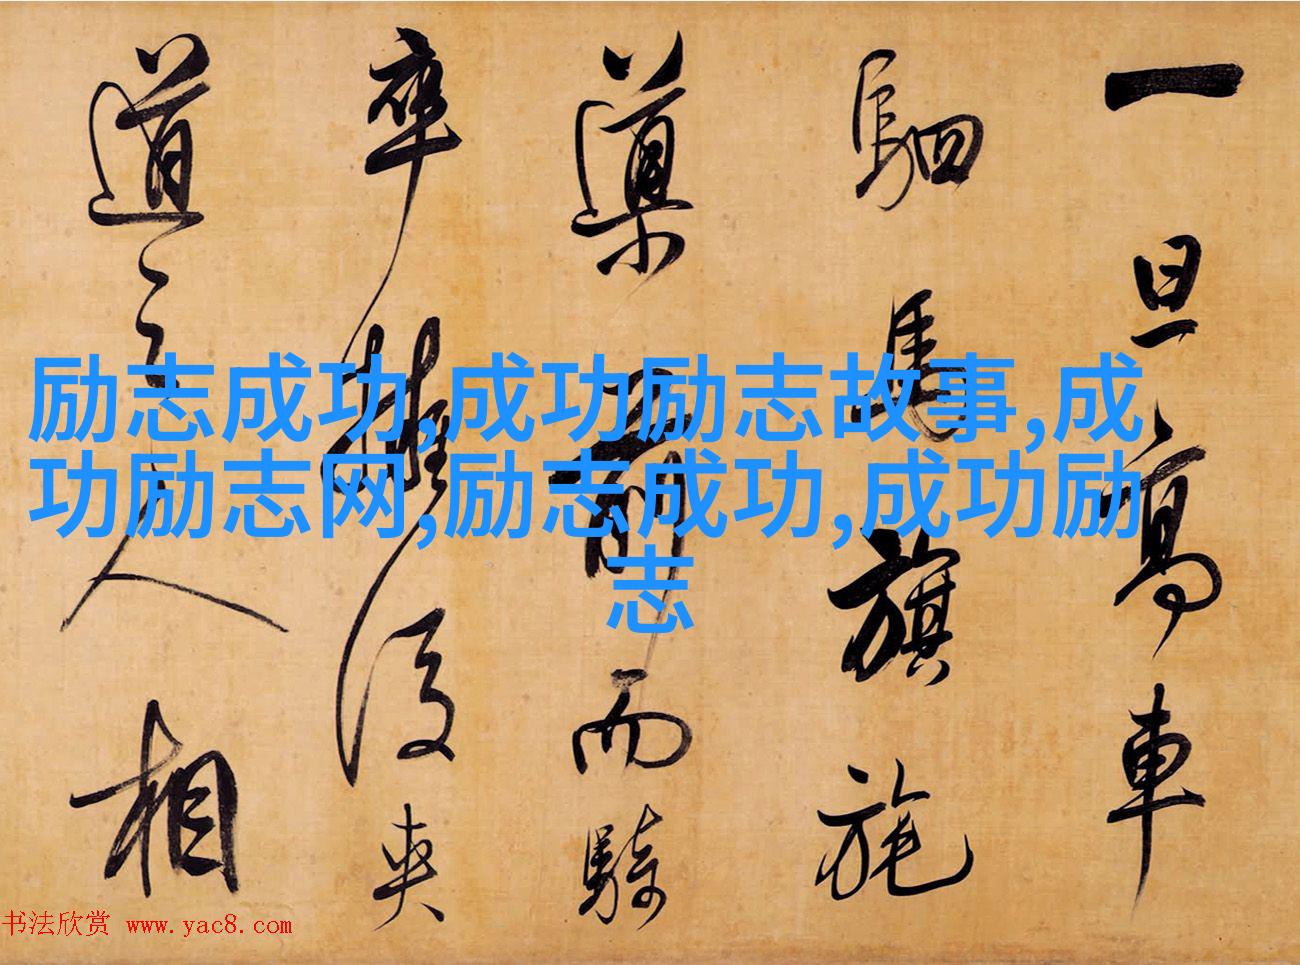 一旦高車
駟馬旗旄
導前而騎
卒擁後夾
道之人相
励志成功,成功励志故事,成
功励志网,励志成功,成功励
志
书法欣赏 www.yac8.com